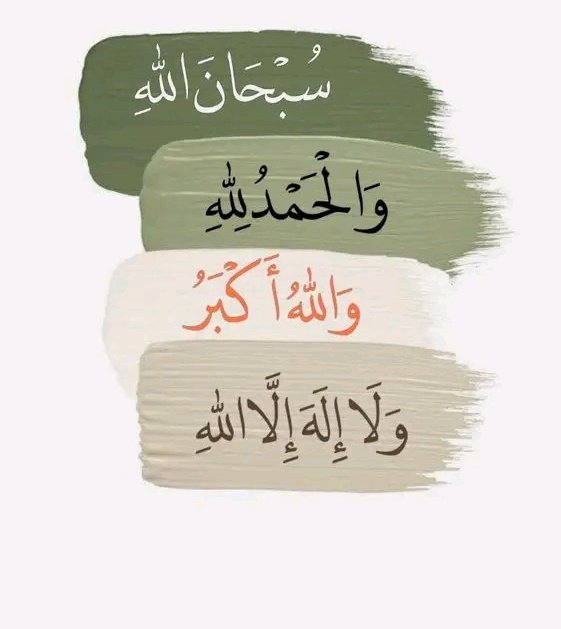 سُبْحَانَ اللهِ
وَالْحَمْدُ لِلهِ
وَاللهُ أَكْبَرُ
وَلَا إِلَهَ إِلَّا اللهِ